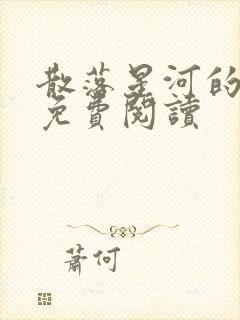 散落星河的
免費閱讀
蕭何